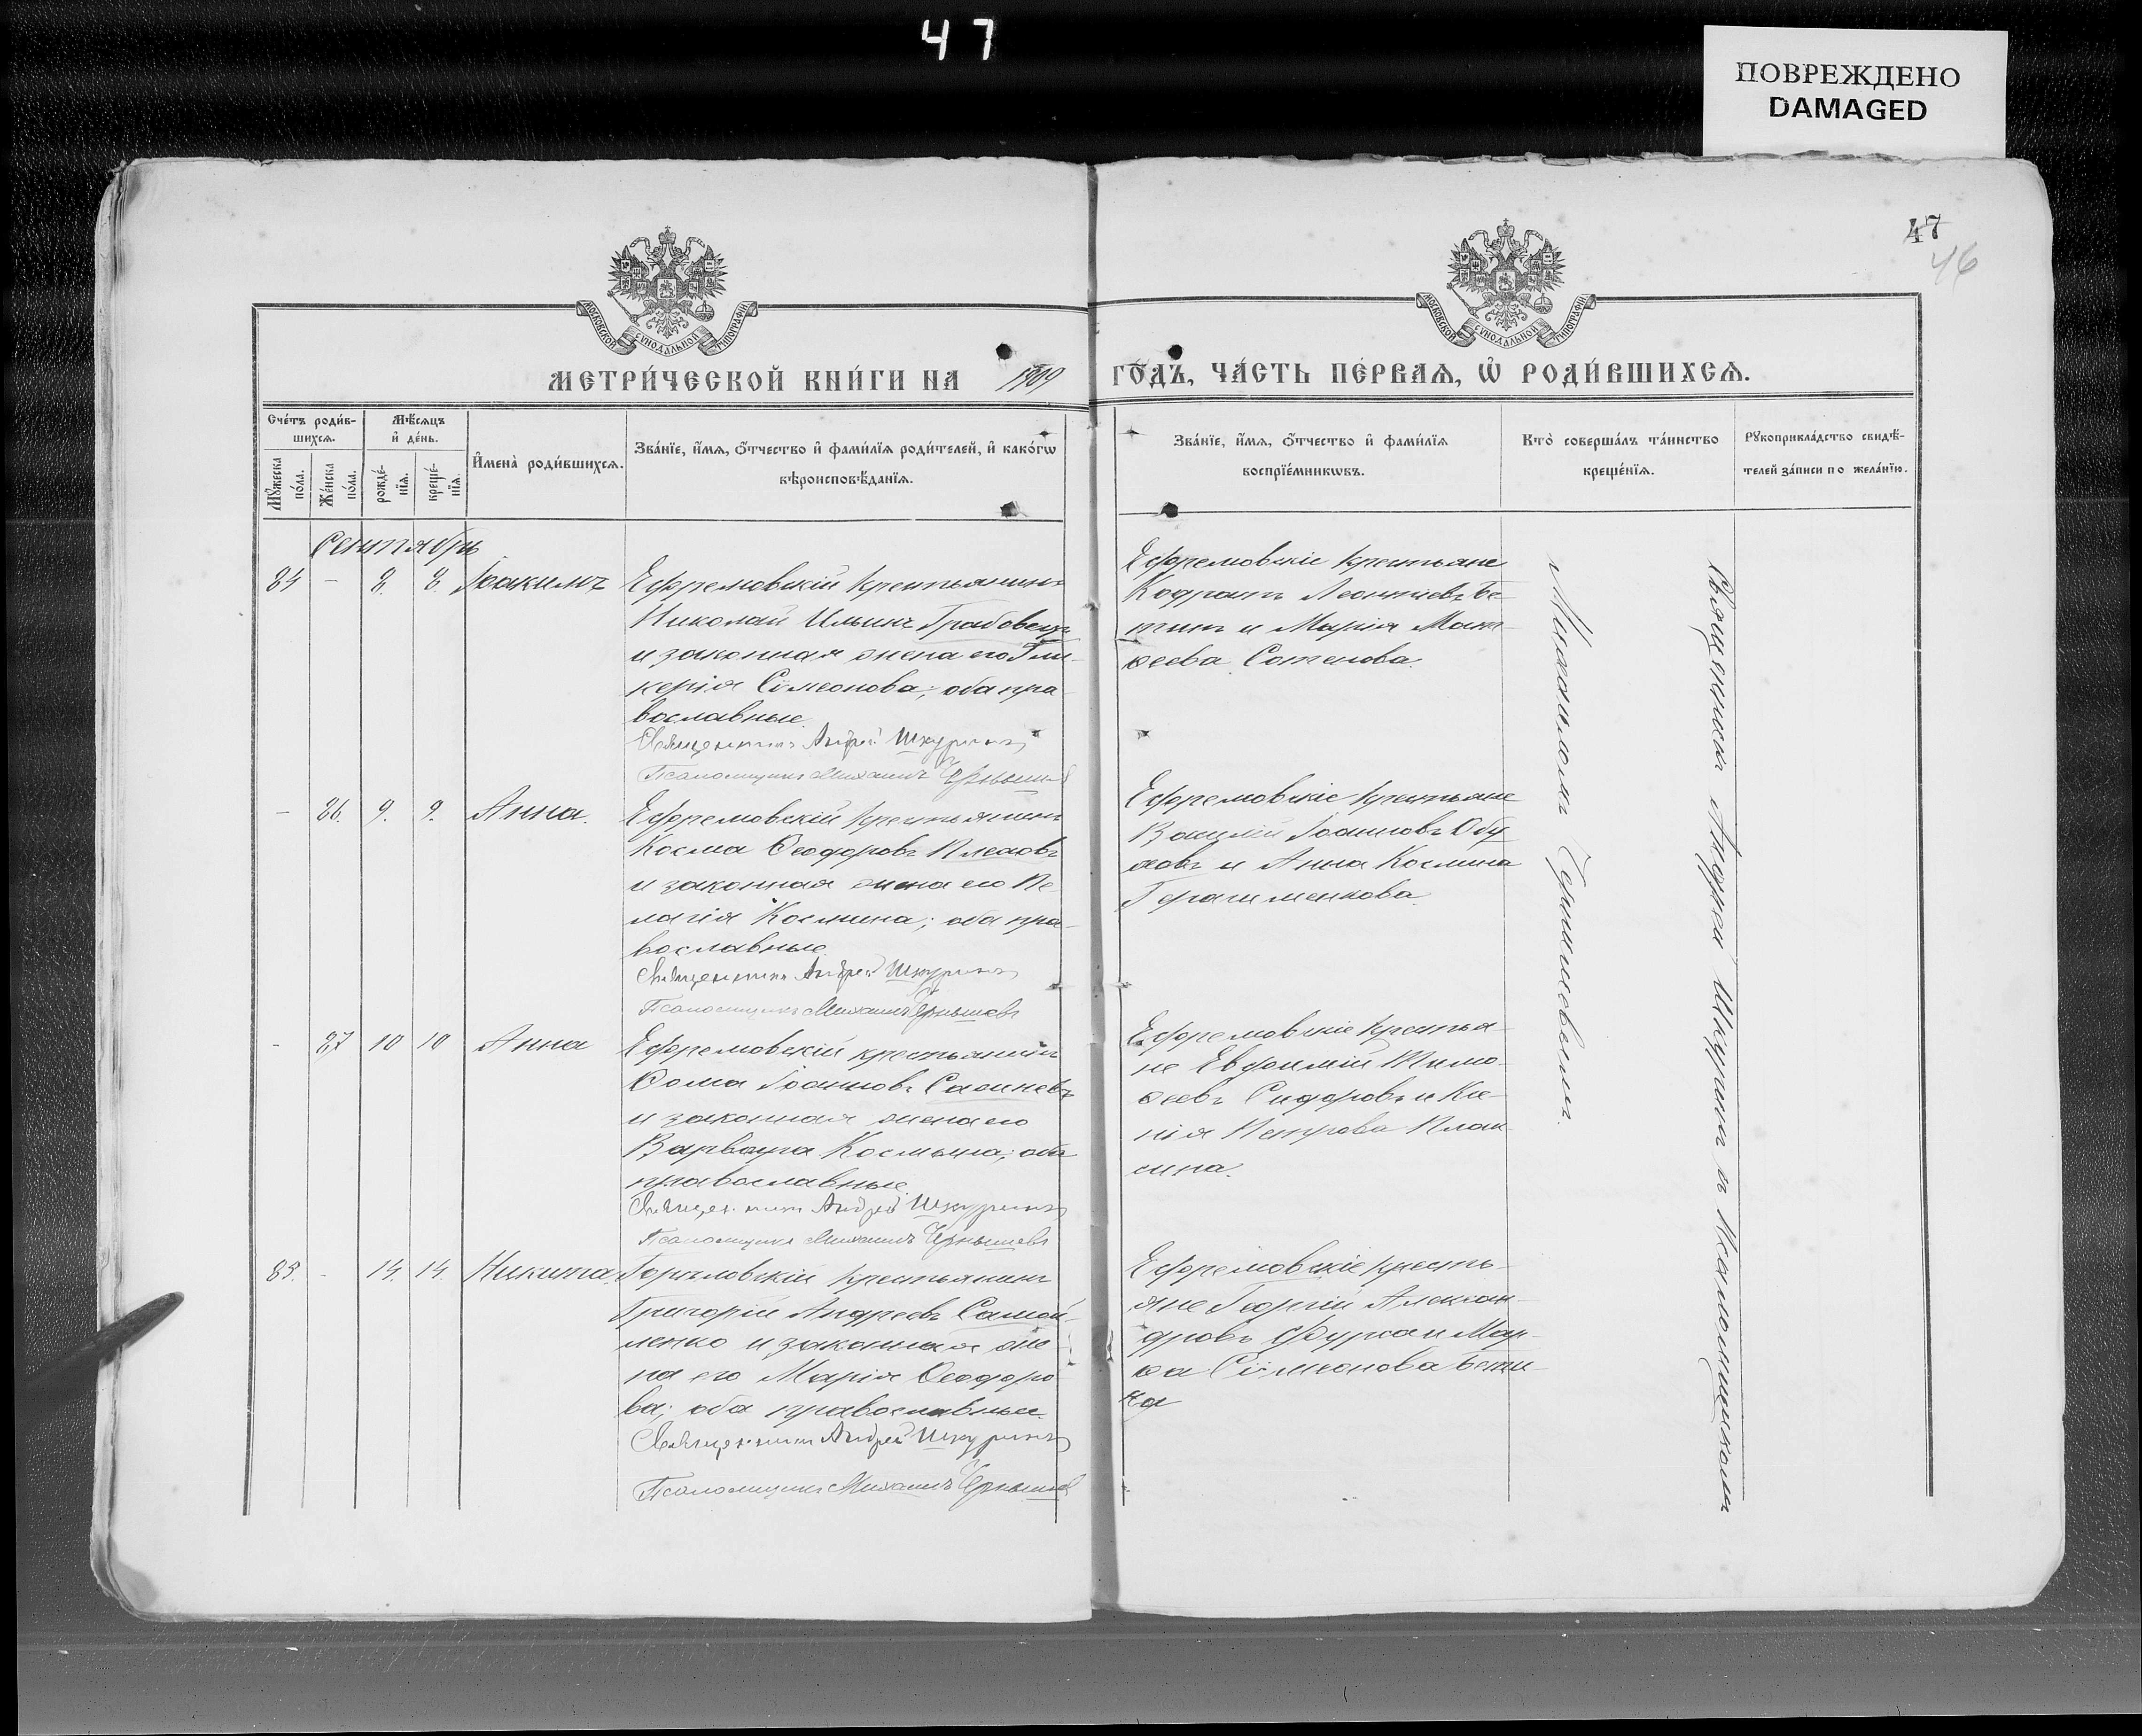 47
ПОВРЕЖДЕНО
DAMAGED
47
46
МОСКОВСКОЙ СѴНОДАЛЬНОЙ ТИПОГРАФІИ
МОСКОВСКОЙ СѴНОДАЛЬНОЙ ТИПОГРАФІИ
МЕТРИ́ЧЕСКОЙ КНИ́ГИ НА 1909 ГО́ДЪ, ЧА́СТЬ ПЕ́РВАѦ, Ѡ҆ РОДИ́ВШИХСѦ.
Сче́тъ роди́в-
шихсѧ.
Мꙋ́жеска
по́ла.
Же́нска
по́ла.
Мѣ́сѧцъ
и҆ де́нь.
рожде́-
нїѧ.
креще́-
нїѧ.
И҆мена̀ роди́вшихсѧ.
Зва́нїе, и҆́мѧ, ѻ҆́тчество и҆ фами́лїѧ роди́телей, и҆ како́гѡ
вѣроисповѣ́данїѧ.
Зва́нїе, и҆́мѧ, ѻ҆́тчество и҆ фами́лїѧ
воспрїе́мникѡвъ.
Кто̀ соверша́лъ та́инство
креще́нїѧ.
Рꙋкоприкла́дство свидѣ́-
телей за́писи по жела́нїю.
Сентябрь
84 - 8. 8. Іоакимъ
Ефремовскій крестьянинъ
Николай Ильинъ Грабовецъ
и законная жена его Гли-
керія Сѵмеонова; оба пра-
вославные.
Священникъ Андрей Шкуринъ
Псаломщикъ Михаилъ Чернышевъ
Ефремовскіе крестьяне
Кодратъ Леонтіевъ Бе-
тинъ и Марія Мат-
ѳеева Сотелова.
- 86. 9. 9. Анна.
Ефремовскій крестьянинъ
Косма Ѳеодоровъ Плеховъ
и законная жена его Пе-
лагія Космина; оба пра-
вославные.
Священникъ Андрей Шкуринъ
Псаломщикъ Михаилъ Чернышевъ
Ефремовскіе крестьяне
Василій Іоанновъ Обу-
ховъ и Анна Космина
Герасименкова.
- 87 10 10 Анна
Ефремовскій крестьянинъ
Ѳома Іоанновъ
и законная жена его
Варвара Космина; оба
православные.
Священникъ Андрей Шкуринъ
Псаломщикъ Михаилъ Чернышевъ
Ефремовскіе крестья-
не Евфимій Тимо-
ѳеевъ Сидоровъ и Ксе-
нія Петрова Плак-
сина.
85. - 14. 14. Никита.
крестьянинъ
Григорій Андреевъ Самой-
ленко и законная же-
на его Марія Ѳеодоро-
ва; оба православные.
Священникъ Андрей Шкуринъ
Псаломщикъ Михаилъ Чернышевъ
Ефремовскіе кресть-
яне Георгій Алексан-
дровъ Фурса и Мар-
ѳа Сѵмеонова Бети-
на
Священникъ Андрей Шкуринъ и Псаломщикомъ
Михаиломъ Чернышевымъ.